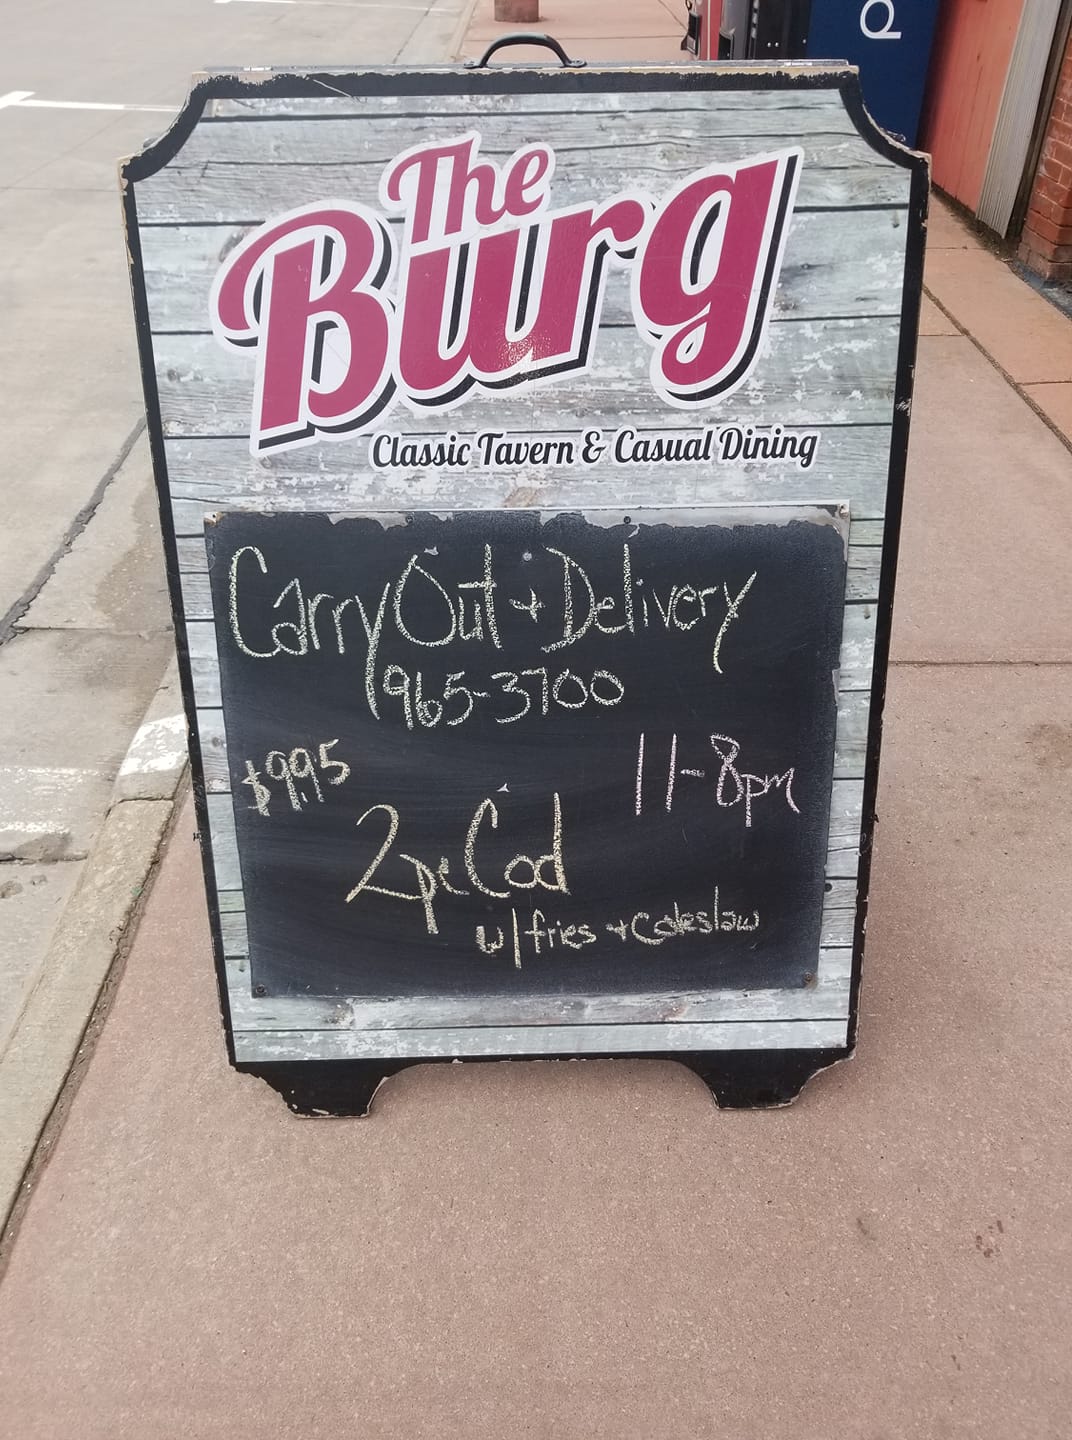 The
Burg
Classic Tavern & Casual Dining
Carry Out + Delivery
965-3700
$9.95
11-8pm
2pc Cod
w/fries + Coleslaw